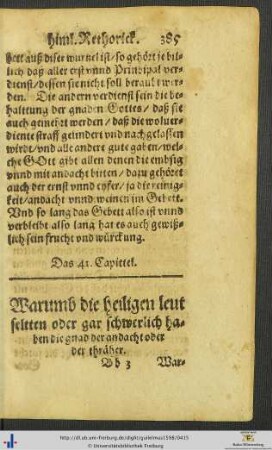 himl. Rethorick. 385
hett auß diser wurtzel ist/ so gehört je bil-
lich daß aller erst vnnd Principal ver-
dienst/ dessen sie nicht soll beraubt wer-
den. Die andern verdienst sein die be-
haltung der gnaden Gottes/ daß sie
auch gemehrt werden/ daß die wolver-
diente straff gemindert vnd nachgelassen
wirdt/ vnd alle andere gute gaben/ wel-
che Gott gibt allen denen die embsig
vnnd mit andacht bitten/ dazu gehöret
auch der ernst vnnd eyfer/ ja die reinig-
keit/ andacht vnnd weinen im Gebett.
Vnd so lang das Gebett also ist vnnd
verbleibt also lang hat es auch gewiß-
lich sein frucht vnd würckung.
Das 41. Capittel.
Warumb die heiligen leut
seltten oder gar schwerlich ha-
ben die gnad der andacht oder
der thräher.
Bb 3 War-
http://dl.ub.uni-freiburg.de/diglit/guilelmus1598/0415
© Universitätsbibliothek Freiburg